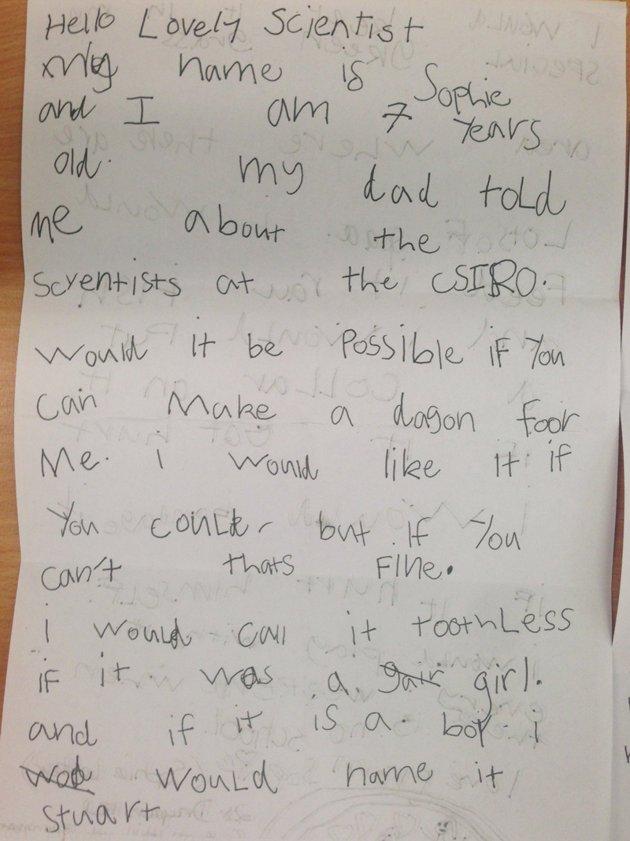 Hello Lovely Scientist
my name is Sophie
and I am 7 years
old. my dad told
me about the
scyentists at the CSIRO.
would it be possible if You
can Make a dagon foor
Me. i would like it if
You could, but if You
can't thats Fine.
i would call it toothLess
if it was a girl.
and if it is a boy i
would name it
stuart